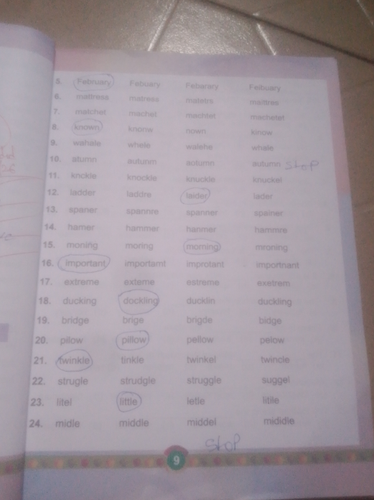 5. February Febuary Febarary Febuary
6. mattress matress maters mattres
7. matchet machet machtet machetet
8. known knone nown know
9. wahale whale walehe whale
10. atumn autunm autumn autumn stop
11. knckle knockle knuckle knuckel
12. ladder laddre lader
13. spaner spannre spanner spelner
14. hamer hammer hanmer hammre
15. moning moring morning mroning
16. important importamt improtant importnant
17. extreme exteme estreme exetrem
18. ducking duckling ducklin duckling
19. bridge brige brigde bidge
20. pilow pillow pellow pelow
21. twinkle tinkle twinkel twincle
22. strugle strudgle struggle suggel
23. litel little letle litle
24. midle middle middel mididle
stop
9